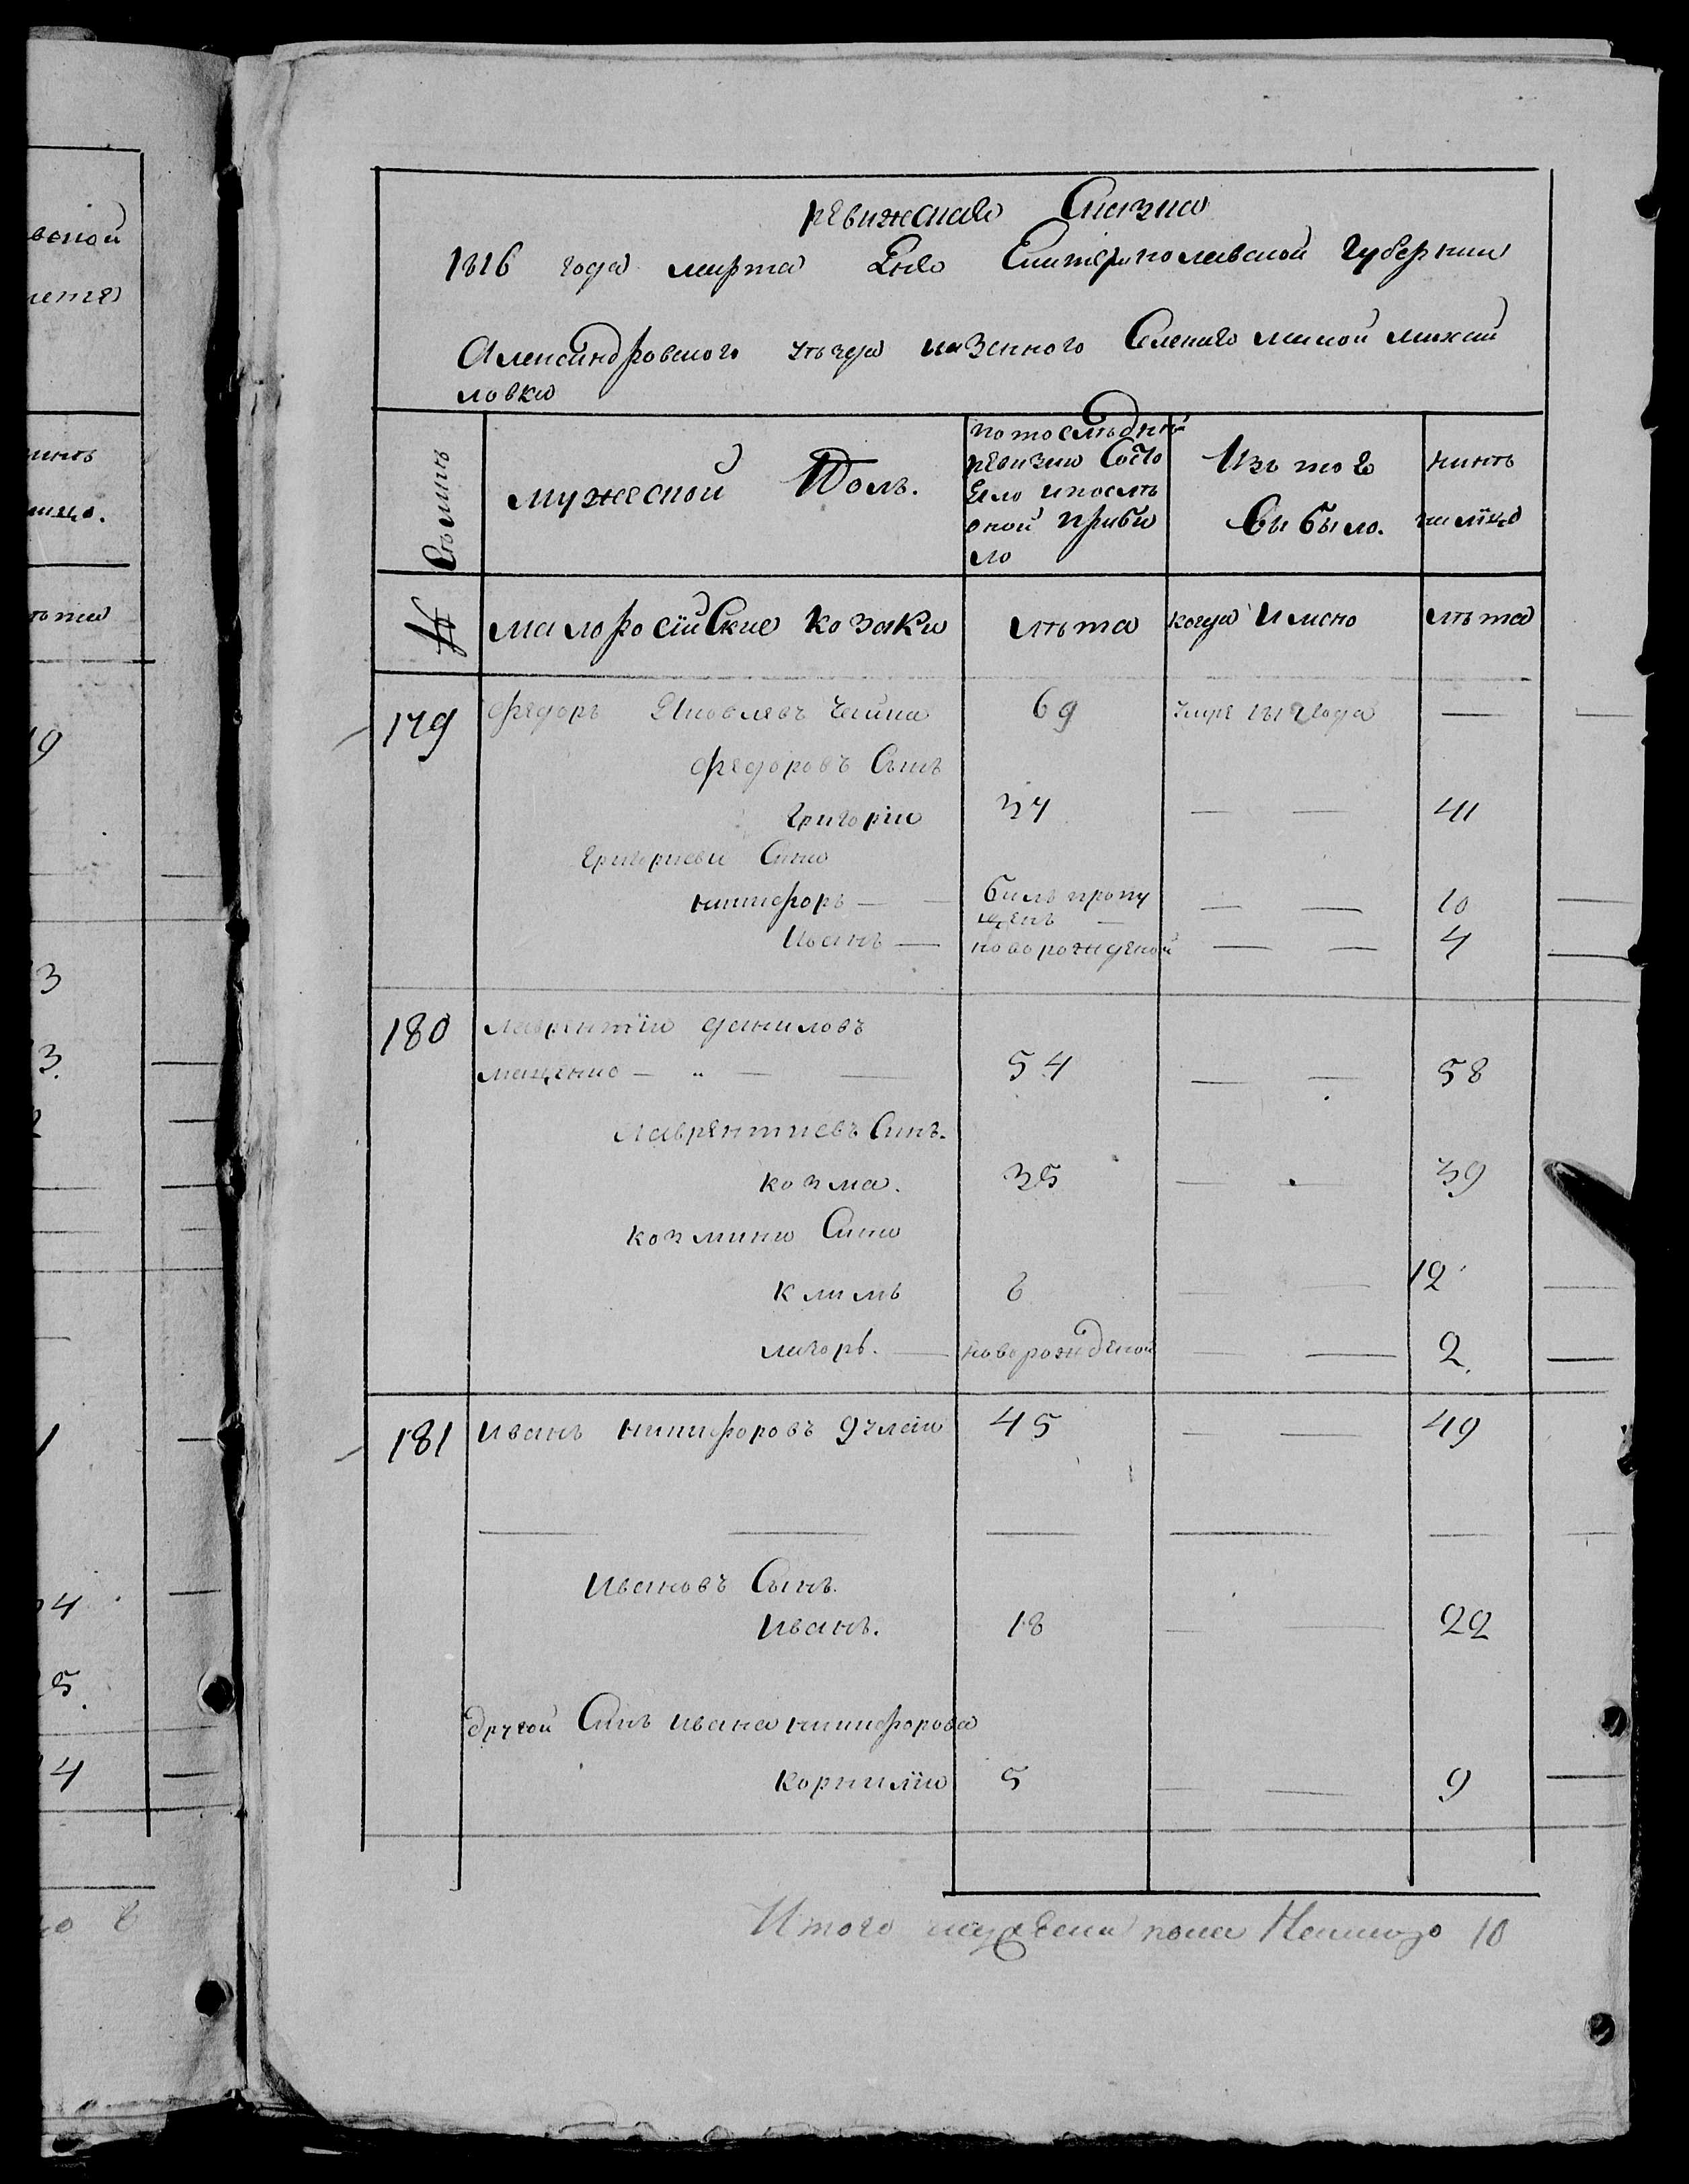 ревижская Сказка
1816 года марта Дня Екатеринославской Губернии
Александровского уъзда казенного Селения малой михай
ловки
Съмиить
мужеской Полъ.
по последней
ревизии Состо
яло и после
оной прибы
ло
Изъ того
выбыло.
нинъ
на лицо
№
малоросийские козаки
лъта
когда имено
лъта
179
федоръ Яковлевъ
69
умре 1812 года
—
федоровъ Сынъ
Григорий
37
— —
41
Григориеви Сини
никифоръ —
билъ пропу
щенъ —
— —
10
Иванъ —
новорожденой
— —
4
180
лаврентий даниловъ
мащенко — " — —
54
— —
58
Лаврентиевъ Синъ.
козма.
35
— —
39
козмини Сини
климъ
8
— —
12
—
новорожденой
— —
2
181
иванъ никифоровъ
45
— —
49
— — — — —
Ивановъ Сынъ.
Иванъ.
18
— —
22
другой Синъ ивана никифорова
корнилий
5
— —
9
Итого мужеска пола Налицо 10
вской
нинъ
лицо.
9
3
3.
2
1
4
5.
4